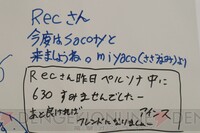 Recさん
今度はsacotyと
来ましょうね。miyaco(ささがみより)
Recさん昨日ペルソナ中に
630 すみませんでしたー
あと良ければ アインス
フレンドになりましょ